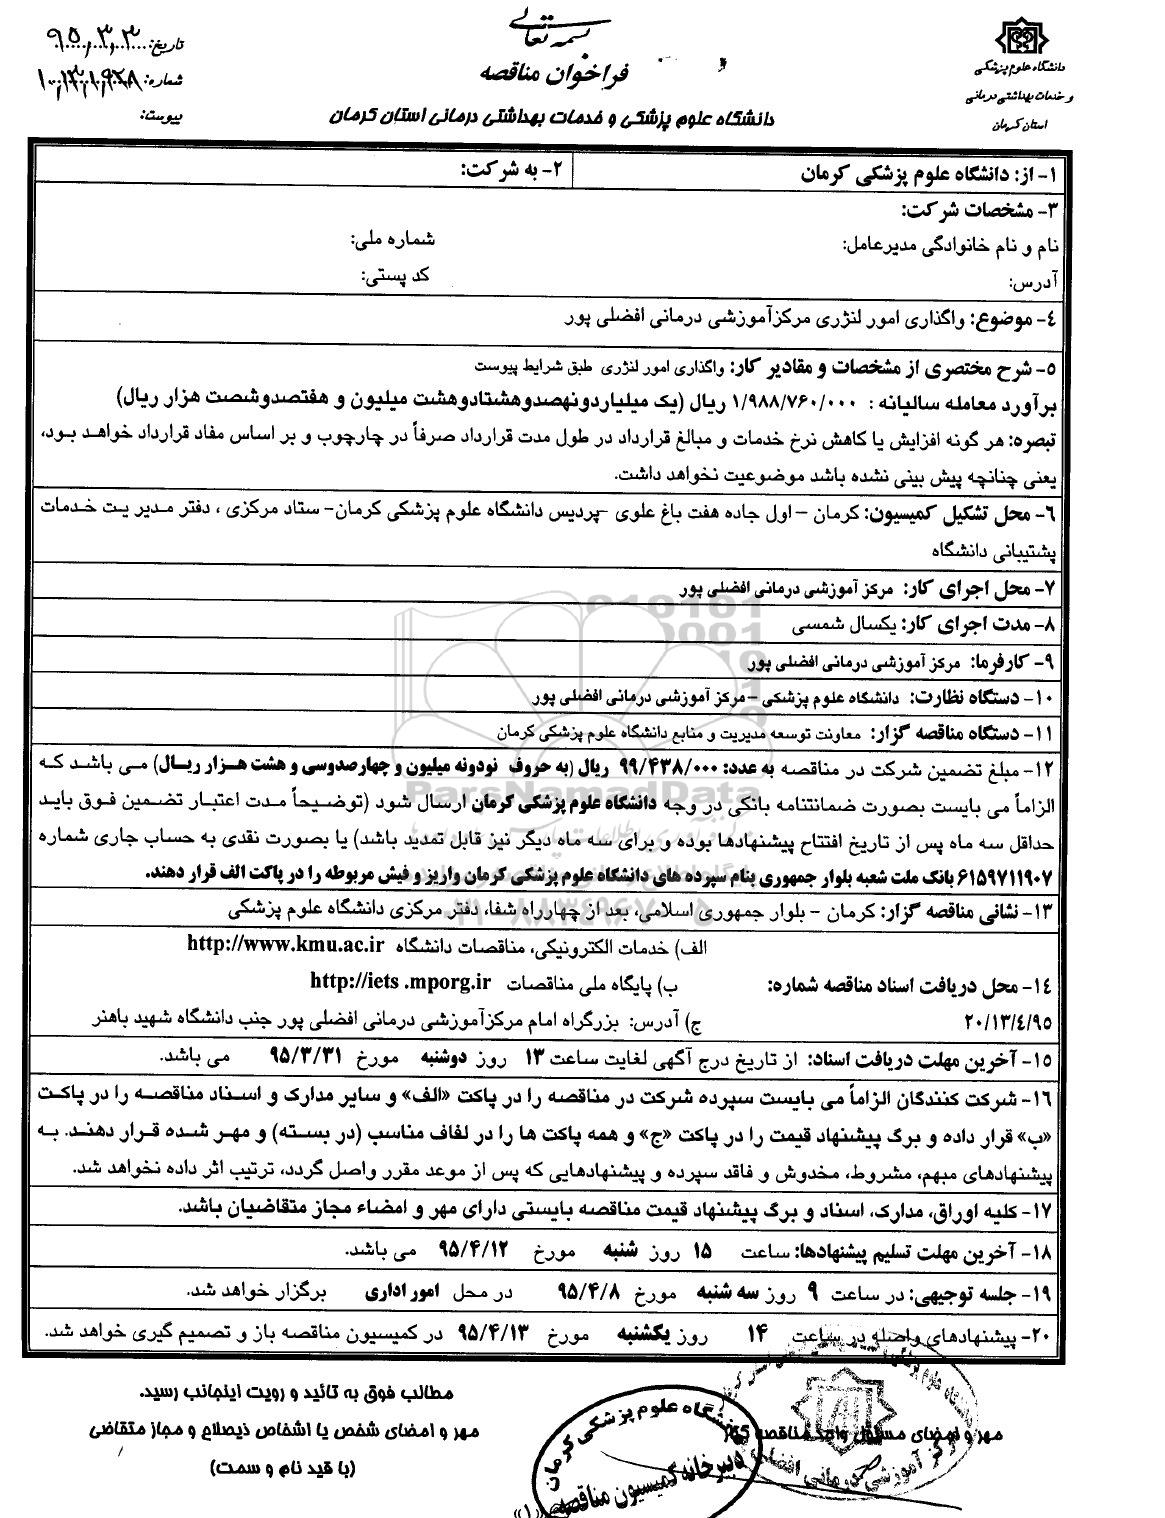 بسمه تعالی
فراخوان مناقصه
دانشگاه علوم پزشکی و خدمات بهداشتی درمانی استان کرمان
دانشگاه علوم پزشکی
و خدمات بهداشتی درمانی
استان کرمان
تاریخ: ۹۵/۳/۳
شماره:
پیوست:
۱- از: دانشگاه علوم پزشکی کرمان
۲- به شرکت:
۳- مشخصات شرکت:
نام و نام خانوادگی مدیرعامل:
شماره ملی:
آدرس:
کد پستی:
۴- موضوع: واگذاری امور لنژری مرکزآموزشی درمانی افضلی پور
۵- شرح مختصری از مشخصات و مقادیر کار: واگذاری امور لنژری طبق شرایط پیوست
برآورد معامله سالیانه : ۱/۹۸۸/۷۶۰/۰۰۰ ریال (یک میلیاردونهصدوهشتادوهشت میلیون و هفتصدوشصت هزار ریال)
تبصره: هر گونه افزایش یا کاهش نرخ خدمات و مبالغ قرارداد در طول مدت قرارداد صرفاً در چارچوب و بر اساس مفاد قرارداد خواهد بود،
یعنی چنانچه پیش بینی نشده باشد موضوعیت نخواهد داشت.
۶- محل تشکیل کمیسیون: کرمان – اول جاده هفت باغ علوی -پردیس دانشگاه علوم پزشکی کرمان- ستاد مرکزی ، دفتر مدیریت خدمات
پشتیبانی دانشگاه
۷- محل اجرای کار: مرکز آموزشی درمانی افضلی پور
۸- مدت اجرای کار: یکسال شمسی
۹- کارفرما: مرکز آموزشی درمانی افضلی پور
۱۰- دستگاه نظارت: دانشگاه علوم پزشکی -مرکز آموزشی درمانی افضلی پور
۱۱- دستگاه مناقصه گزار: معاونت توسعه مدیریت و منابع دانشگاه علوم پزشکی کرمان
۱۲- مبلغ تضمین شرکت در مناقصه به عدد: ۹۹/۴۳۸/۰۰۰ ریال (به حروف نودونه میلیون و چهارصدوسی و هشت هزار ریال) می باشد که
الزاماً می بایست بصورت ضمانتنامه بانکی در وجه دانشگاه علوم پزشکی کرمان ارسال شود (توضیحاً مدت اعتبار تضمین فوق باید
حداقل سه ماه پس از تاریخ افتتاح پیشنهادها بوده و برای سه ماه دیگر نیز قابل تمدید باشد) یا بصورت نقدی به حساب جاری شماره
۶۱۵۹۷۱۱۹۰۷ بانک ملت شعبه بلوار جمهوری بنام سپرده های دانشگاه علوم پزشکی کرمان واریز و فیش مربوطه را در پاکت الف قرار دهند.
۱۳- نشانی مناقصه گزار: کرمان - بلوار جمهوری اسلامی، بعد از چهارراه شفا، دفتر مرکزی دانشگاه علوم پزشکی
الف) خدمات الکترونیکی، مناقصات دانشگاه http://www.kmu.ac.ir
۱۴- محل دریافت اسناد مناقصه شماره:
ب) پایگاه ملی مناقصات http://iets .mporg.ir
۲۰/۱۳/۴/۹۵
ج) آدرس: بزرگراه امام مرکزآموزشی درمانی افضلی پور جنب دانشگاه شهید باهنر
۱۵- آخرین مهلت دریافت اسناد: از تاریخ درج آگهی لغایت ساعت ۱۳ روز دوشنبه مورخ ۹۵/۳/۳۱ می باشد.
۱۶- شرکت کنندگان الزاماً می بایست سپرده شرکت در مناقصه را در پاکت «الف» و سایر مدارک و اسناد مناقصه را در پاکت
«ب» قرار داده و برگ پیشنهاد قیمت را در پاکت «ج» و همه پاکت ها را در لفاف مناسب (در بسته) و مهر شده قرار دهند. به
پیشنهادهای مبهم، مشروط، مخدوش و فاقد سپرده و پیشنهادهایی که پس از موعد مقرر واصل گردد، ترتیب اثر داده نخواهد شد.
۱۷- کلیه اوراق، مدارک، اسناد و برگ پیشنهاد قیمت مناقصه بایستی دارای مهر و امضاء مجاز متقاضیان باشد.
۱۸- آخرین مهلت تسلیم پیشنهادها: ساعت ۱۵ روز شنبه مورخ ۹۵/۴/۱۲ می باشد.
۱۹- جلسه توجیهی: در ساعت ۹ روز سه شنبه مورخ ۹۵/۴/۸ در محل امور اداری برگزار خواهد شد.
۲۰- پیشنهادهای واصله در ساعت ۱۴ روز یکشنبه مورخ ۹۵/۴/۱۳ در کمیسیون مناقصه باز و تصمیم گیری خواهد شد.
مطالب فوق به تائید و رویت اینجانب رسید.
مهر و امضای شخص یا اشخاص ذیصلاح و مجاز متقاضی
(با قید نام و سمت)
مهر و امضای مسئول واحد مناقصه گزار
دانشگاه علوم پزشکی کرمان
دبیرخانه کمیسیون مناقصه
مرکز آموزشی درمانی افضلی
ParsNamadData
«۱»